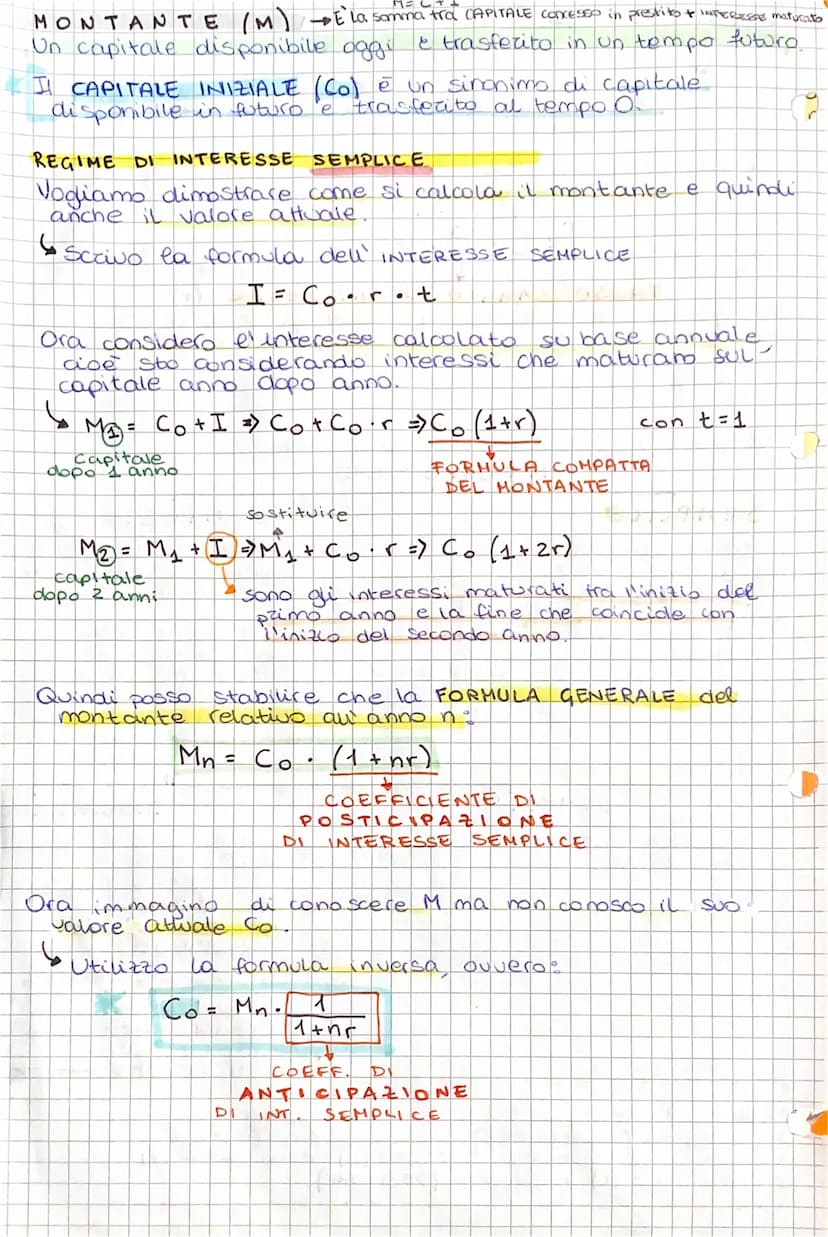 M = C + I
MONTANTE (M) → È la somma tra CAPITALE concesso in prestito + INTERESSE maturato
Un capitale disponibile oggi e trasferito in un tempo futuro.
Il CAPITALE INIZIALE (C0) è un sinonimo di capitale
disponibile in futuro e trasferito al tempo 0.
REGIME DI INTERESSE SEMPLICE
Vogliamo dimostrare come si calcola il montante e quindi
anche il valore attuale.
↳ Scrivo la formula dell' INTERESSE SEMPLICE
I = C0 · r · t
Ora considero l'interesse calcolato su base annuale,
cioè sto considerando interessi che maturano sul
capitale anno dopo anno.
↳ M1 = C0 + I => C0 + C0 · r => C0 (1+r) con t=1
capitale
dopo 1 anno
FORMULA COMPATTA
DEL MONTANTE
sostituire
M2 = M1 + I => M1 + C0 · r => C0 (1+2r)
capitale
dopo 2 anni
sono gli interessi maturati tra l'inizio del
primo anno e la fine che coincide con
l'inizio del secondo anno.
Quindi posso stabilire che la FORMULA GENERALE del
montante relativo all'anno n:
Mn = C0 · (1 + nr)
COEFFICIENTE DI
POSTICIPAZIONE
DI INTERESSE SEMPLICE
Ora immagino di conoscere M ma non conosco il suo
valore attuale C0.
↳ Utilizzo la formula inversa, ovvero:
C0 = Mn · 1
1+nr
COEFF. DI
ANTICIPAZIONE
DI INT. SEMPLICE